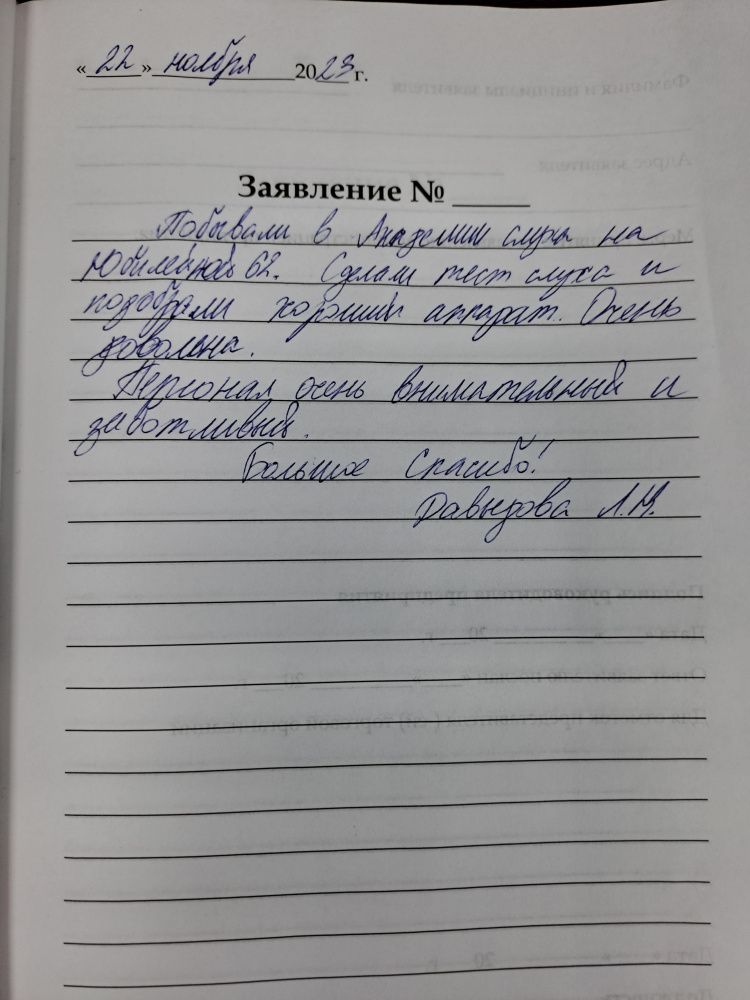 « 22 » ноября 2023 г.
Заявление № ____
Побывали в Академии слуха на
Юбилейной 62. Сделали тест слуха и
подобрали хороший аппарат. Очень
довольна.
Персонал очень внимательный и
заботливый.
Большое Спасибо!
Давыдова Л.М.